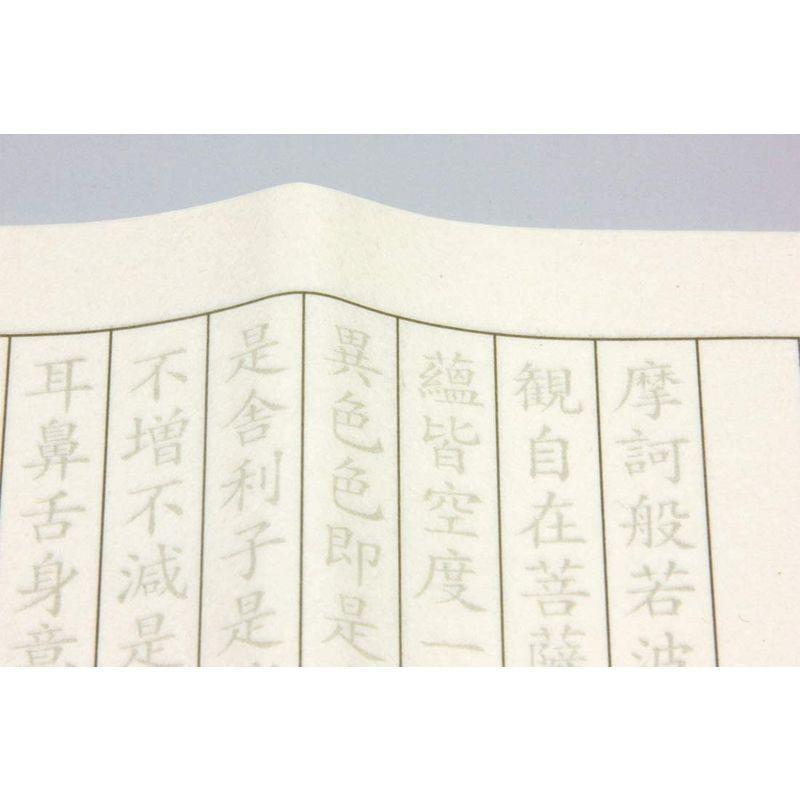 摩訶般若波
観自在菩薩
蘊皆空度一
異色色即是
是舎利子是
不増不減是
耳鼻舌身意